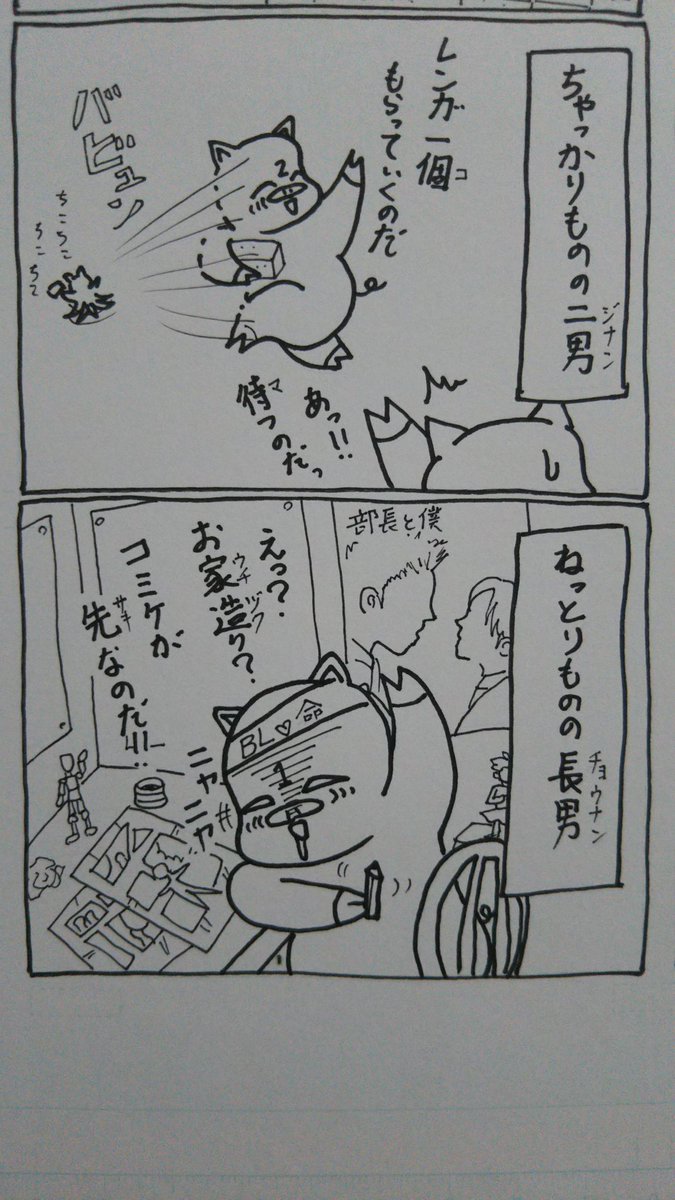 ちゃっかりものの二男
ジナン
レンガ一個
コ
もらっていくのだ
2
バビュン
ちこちこ
あっ!!
待つのだっ
マ
ねっとりものの長男
チョウナン
部長と僕
えっ?
お家造り?
ウチ ヅク
コミケが
先なのだ!!
サキ
BL♡命
1
ニャニャ